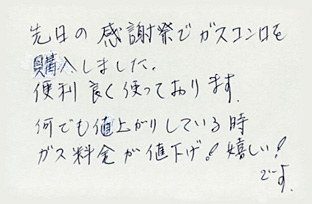 先日の感謝祭でガスコンロを
購入しました。
便利良く使っております。
何でも値上がりしている時
ガス料金が値下げ!嬉しい!
です。